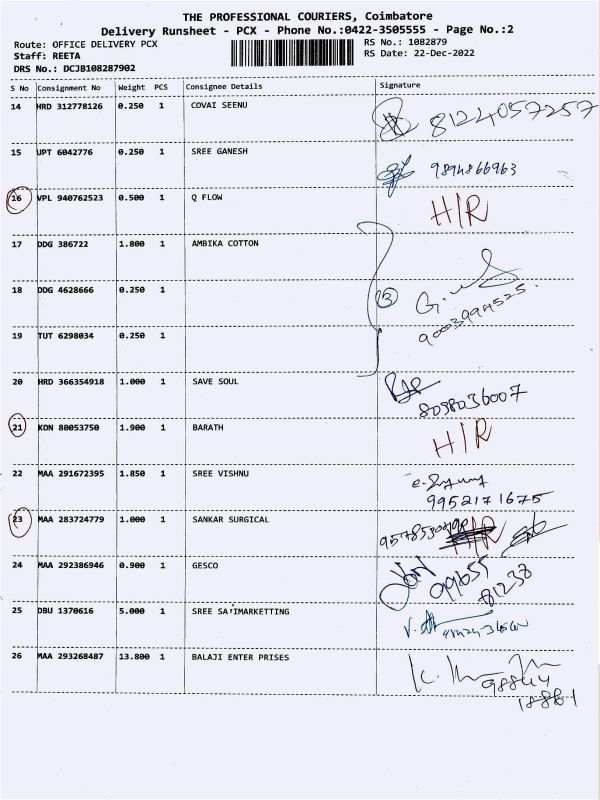 THE PROFESSIONAL COURIERS, Coimbatore
Delivery Runsheet - PCX - Phone No.:0422-3505555 - Page No.:2
Route: OFFICE DELIVERY PCX
RS No.: 1082879
Staff: REETA
RS Date: 22-Dec-2022
DRS No.: DCJB108287902
S No Consignment No Weight PCS Consignee Details Signature
14 HRD 312778126 0.250 1 COVAI SEENU
8124057257
15 UPT 6042776 0.250 1 SREE GANESH
9894866963
16 VPL 940762523 0.500 1 Q FLOW H/R
17 DDG 386722 1.800 1 AMBIKA COTTON
18 DDG 4628666 0.250 1
3
19 TUT 6298034 0.250 1
20 HRD 366354918 1.000 1 SAVE SOUL
8098036007
21 KON 80053750 1.900 1 BARATH H/R
22 MAA 291672395 1.850 1 SREE VISHNU
9952171675
23 MAA 283724779 1.000 1 SANKAR SURGICAL
24 MAA 292386946 0.900 1 GESCO
99655
81238
25 DBU 1370616 5.000 1 SREE SAIMARKETTING
26 MAA 293268487 13.800 1 BALAJI ENTER PRISES
98844
18881